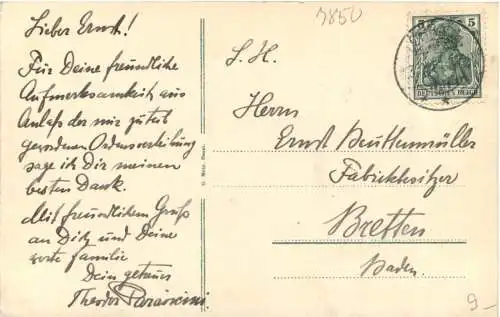 Lieber Ernst!
Für Deine freundliche
Aufmerksamkeit aus
Anlaß der mir zuteil
gewordenen Ordensverleihung
sage ich Dir meinen
besten Dank.
Mit freundlichem Gruß
an Dich und Deine
werte Familie
Dein getreuer
Theodor Paravicini
3850
5 5
DEUTSCHES REICH
S. H.
Herrn
Ernst Beuttenmüller
Fabrikbesitzer
Bretten
Baden.
9-